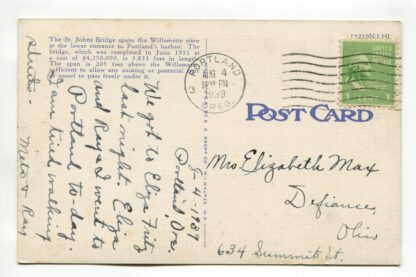 The St. Johns Bridge spans the Willamette river
at the lower entrance to Portland's harbor. The
bridge, which was completed in June 1931 at
a cost of $4,250,000, is 3,833 feet in length.
The span is 205 feet above the Willamette,
sufficient to allow any existing or potential
vessel to pass freely under it.
PORTLAND
AUG 4
12 PM
1939
OREG.
3
POST CARD
4-1939
Portland Ore.
We got to Eliza
last night. Eliza
and Ray & I went to
Portland to-day.
I am tired walking
Meta & Ray
Mrs. Elizabeth Max
Defiance,
Ohio
634 Summit St.